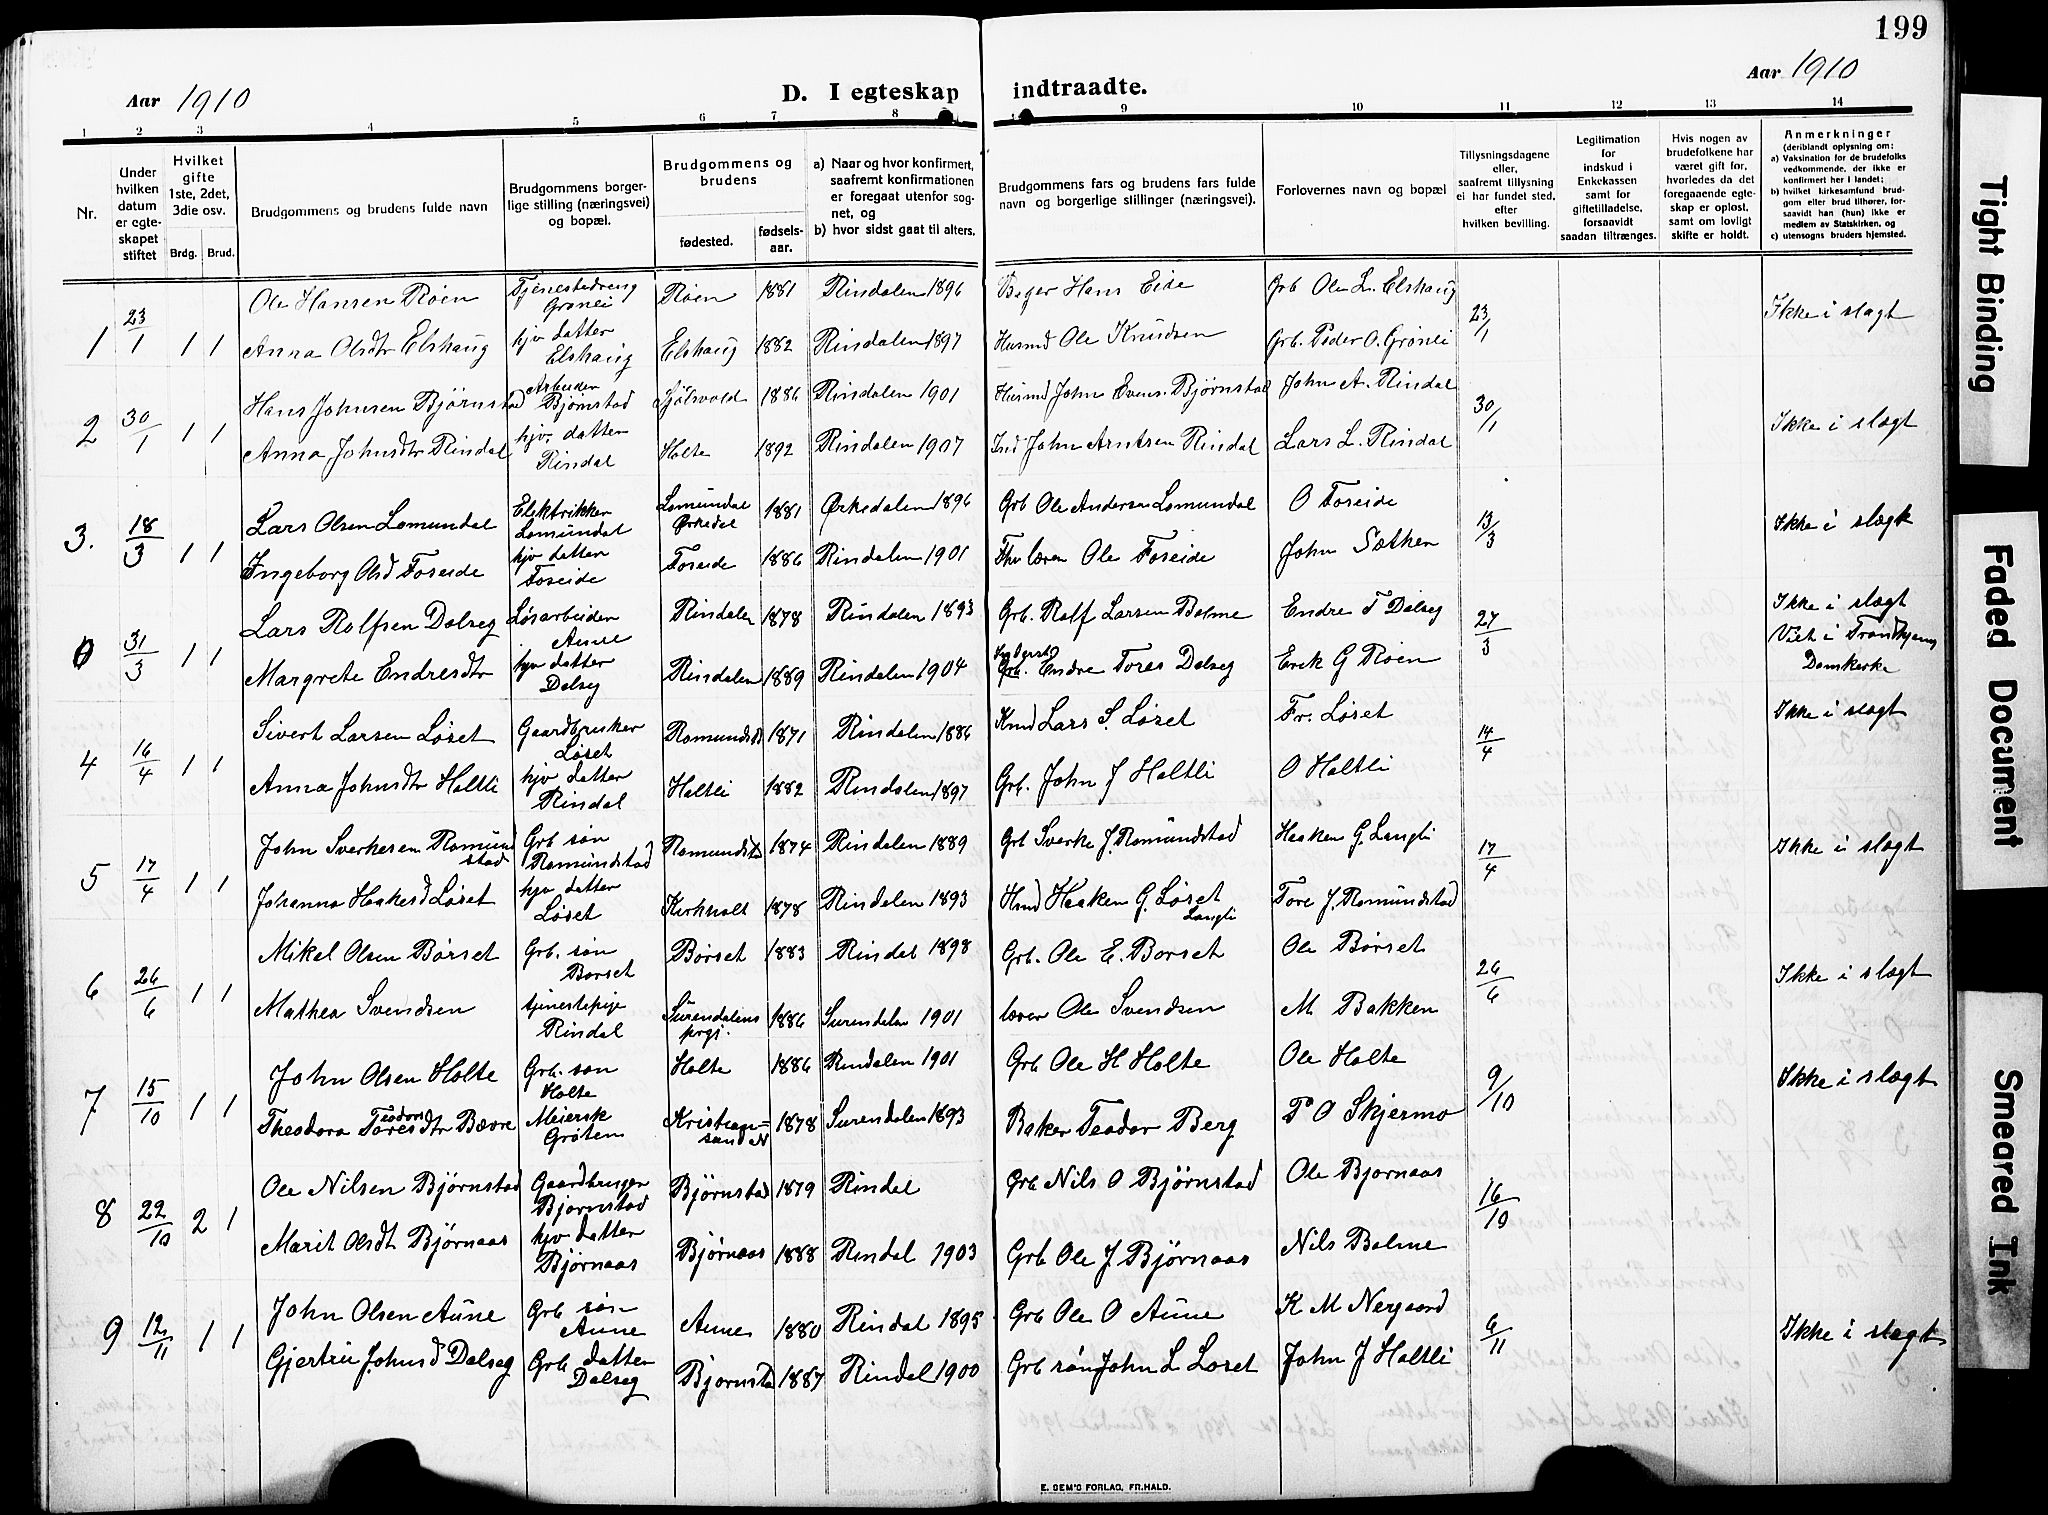 199
Aar 1910
D. I egteskap indtraadte.
Aar 1910
1 2 3 4 5 6 7 8 9 10 11 12 13 14
Nr.
Under hvilken datum er egteskapet stiftet
Hvilket gifte 1ste, 2det, 3die osv.
Brdg. Brud.
Brudgommens og brudens fulde navn
Brudgommens borgerlige stilling (næringsvei) og bopæl.
Brudgommens og brudens
fødested.
fødselsaar.
a) Naar og hvor konfirmert, saafremt konfirmationen er foregaat utenfor sognet, og
b) hvor sidst gaat til alters.
Brudgommens fars og brudens fars fulde navn og borgerlige stillinger (næringsvei).
Forlovernes navn og bopæl
Tillysningsdagene eller, saafremt tillysning ei har fundet sted, efter hvilken bevilling.
Legitimation for indskud i Enkekassen samt for giftetilladelse, forsaavidt saadan tiltrænges.
Hvis nogen av brudefolkene har været gift før, hvorledes da det foregaaende egteskap er opløst, samt om lovligt skifte er holdt.
Anmerkninger (deriblandt oplysning om:
a) Vaksination for de brudefolks vedkommende, der ikke er konfirmert her i landet;
b) hvilket kirkesamfund brudgom eller brud tilhører, forsaavidt han (hun) ikke er medlem av Statskirken, og
c) utensogns bruders hjemsted.
1 23/1 1 1 Ole Hansen Røen Tjenestedreng Grønli Røen 1881 Rindalen 1896 Hans Eide Grb Ole L. Elshaug 23/1 Ikke i slægt
Anna Olsdtr Elshaug hjv datter Elshaug Elshaug 1882 Rindalen 1897 Husmd Ole Knudsen Grb. Peder O. Grønli
2 30/1 1 1 Hans Johnsen Bjørnstad Arbeider Bjørnstad 1886 Rindalen 1901 Husmd John Evens. Bjørnstad John A. Rindal 30/1 Ikke i slægt
Anna Johnsdtr Rindal hjv. datter Rindal Holte 1892 Rindalen 1907 Ind John Arntsen Rindal Lars L. Rindal
3. 18/3 1 1 Lars Olsen Lomundal Elektriker Lomundal Lomundal Ørkedal 1881 Ørkedalen 1896 Grb Ole Andersen Lomundal O Foseide 13/3 Ikke i slægt
Ingeborg Olsd Foseide hjv datter Foseide Foseide 1886 Rindalen 1901 Ole Foseide John Sæther
0 31/3 1 1 Lars Rolfsen Dalseg Løsarbeider Aune Rindalen 1878 Rindalen 1893 Grb. Rolf Larsen Bolme Endre T Dalseg 27/3 Ikke i slægt Viet i Trondhjems Domkerke
Margrete Endresdtr hjv datter Dalseg Rindalen 1889 Rindalen 1904 Grb. Endre Tores Dalseg Erik G Røen
4 16/4 1 1 Sivert Larsen Løset Gaardbruker Løset Romundst 1871 Rindalen 1886 Lars S. Løset Fr. Løset 14/4 Ikke i slægt
Anna Johnsdtr Holtli hjv datter Rindal Holtli 1882 Rindalen 1897 Grb. John J Holtli O Holtli
5 17/4 1 1 John Sverkesen Romundstad Grb søn Romundstad Romundst 1874 Rindalen 1889 Grb Sverke J. Romundstad Haaken G. Langli 17/4 Ikke i slægt
Johanna Haakesd Løset hjv datter Løset Kirkholt 1878 Rindalen 1893 Hmd Haaken G. Løset Langli Tore J. Romundstad
6 26/6 1 1 Mikal Olsen Børset Grb. søn Børset Børset 1883 Rindal 1898 Grb. Ole E. Børset Ole Børset 26/6 Ikke i slægt
Mathea Svendsen tjenestepige Rindal Surendalens prgj. 1886 Surendalen 1901 lærer Ole Svendsen M Bakken
7 15/10 1 1 John Olsen Holte Grb. søn Holte Holte 1886 Rindalen 1901 Grb Ole H Holte Ole Holte 9/10 Ikke i slægt
Theodora Toresdtr Teodors Bævre Meiersk Grøten Kristiansund N 1878 Surendalen 1893 Baker Teodor Berg P O Skjermo
8 22/10 2 1 Ole Nilsen Bjørnstad Gaardbruger Bjørnstad Bjørnstad 1879 Rindal Grb Nils O Bjørnstad Ole Bjørnaas 16/10
Marit Olsdt Bjørnaas hjv datter Bjørnaas Bjørnaas 1888 Rindal 1903 Grb Ole J Bjørnaas Nils Bolme
9 12/11 1 1 John Olsen Aune Grb søn Aune Aune 1880 Rindal 1895 Grb Ole O Aune K M Nergaard 6/11 Ikke i slægt
Gjertru Johnsd Dalseg Grb datter Dalseg Bjørnsta 1887 Rindal 1900 Grb søn John L Løset John J Holtli
E. SEM'S FORLAG, FR.HALD.
Tight Binding
Faded Document
Smeared Ink